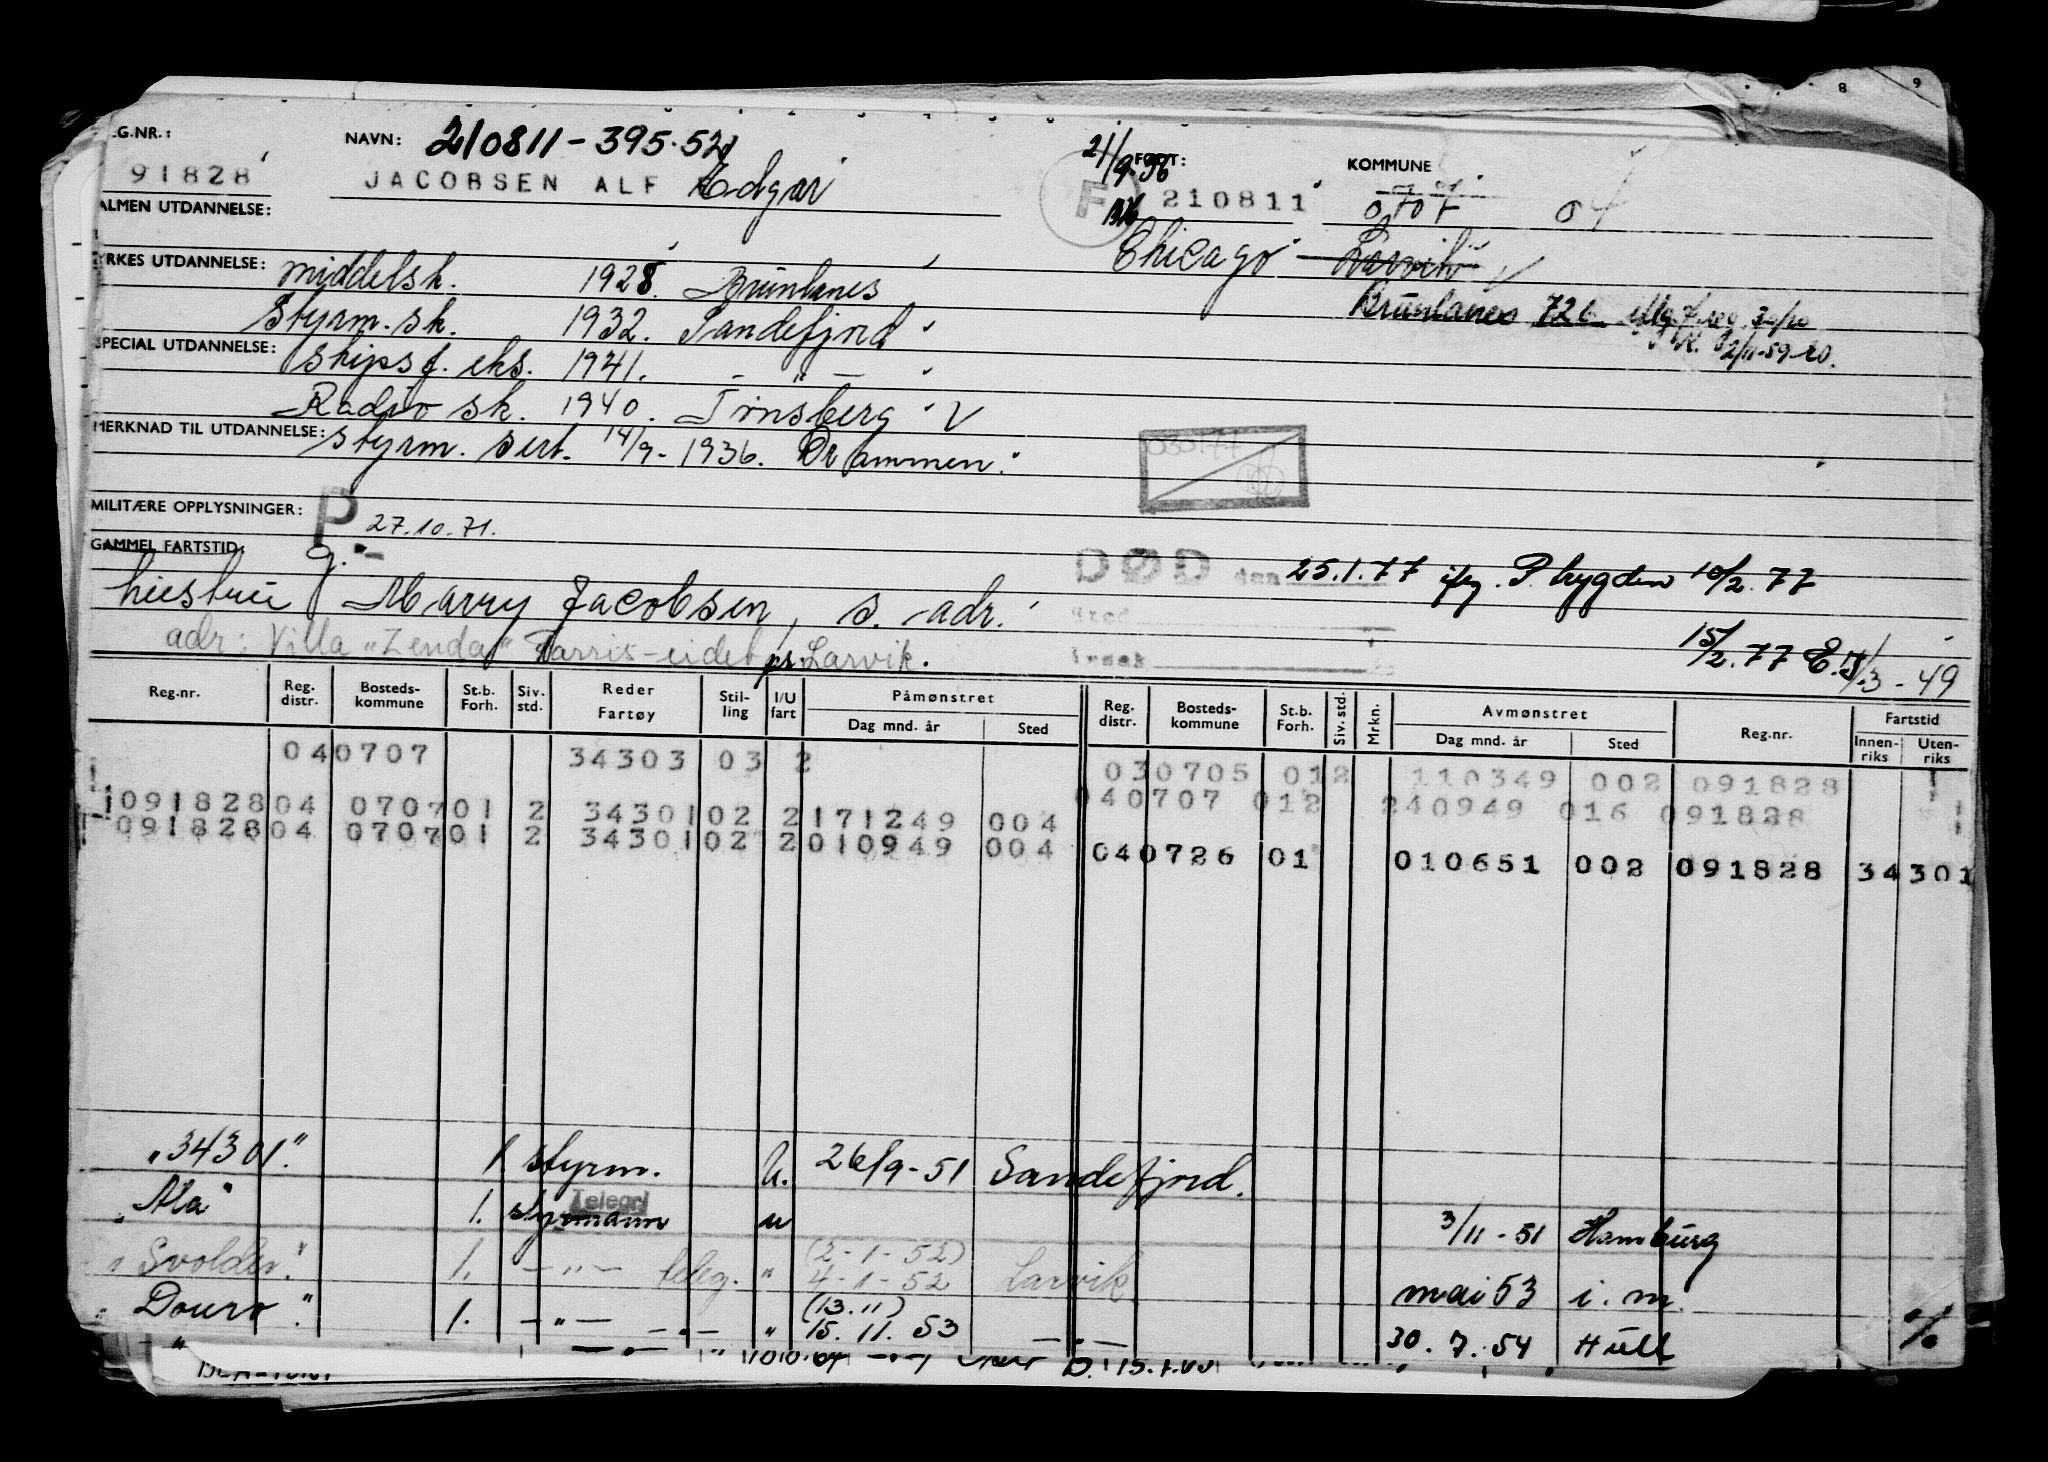 8 9
EG.NR.: NAVN: 210811-395.52 21/9-36 FØDT: KOMMUNE
91828 JACOBSEN ALF Edgar F 210811 0707 04
ALMEN UTDANNELSE:
Chicago Larvik
YRKES UTDANNELSE: middelsk. 1928. Brunlanes
Brunlanes 726
Styrm. sk. 1932. Sandefjord
2/11-59
SPECIAL UTDANNELSE: Skipsf. eks. 1941. — " —
Radio sk. 1940. Tønsberg
MERKNAD TIL UTDANNELSE: Styrm. sert. 14/9-1936. Drammen.
030177
MILITÆRE OPPLYSNINGER: P 27.10.71.
GAMMEL FARTSTID: g.
DØD den 25.1.77 ifg. P. trygden 10/2.77
hustru Marry Jacobsen, s. adr.
Sted
adr: Villa "Zenda" Farris-eidet pr. Larvik.
Årsak
15/2.77 3-49
Reg.nr. Reg. distr. Bosteds- kommune St.b. Forh. Siv. std. Reder Fartøy Stil- ling I/U fart Påmønstret Dag mnd. år Sted Reg. distr. Bosteds- kommune St.b. Forh. Siv. std. Mrkn. Avmønstret Dag mnd. år Sted Reg.nr. Fartstid Innen- riks Uten- riks
040707 34303 03 2 030705 012 110349 002 091828
091828 04 0707 01 2 34301 02 2 171249 004 040707 012 240949 016 091828
091828 04 0707 01 2 34301 02 2 010949 004 040726 01 010651 002 091828 34301
"34301" 1 styrm. u. 26/9-51 Sandefjord.
"Ala" 1. styrmann Telegr u 3/11-51 Hamburg
"Svolder" 1. — " — teleg. " (2-1-52) 4-1-52 Larvik mai 53 i. m.
"Douro" 1. — " — — " — " (13.11) 15.11.53 — " — 30.7.54 Hull %